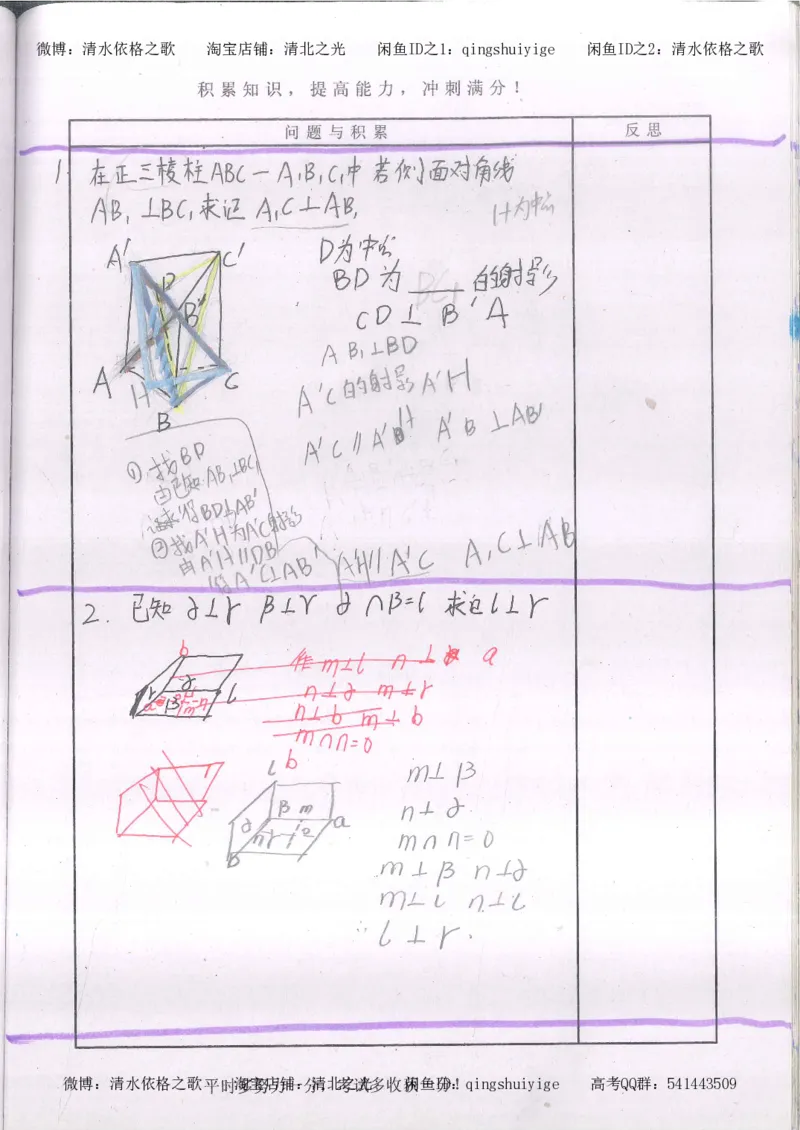 微博：清水依格之歌 淘宝店铺：清北之光 闲鱼ID之1：qingshuiyige 闲鱼ID之2：清水依格之歌
积累知识，提高能力，冲刺满分！
问题与积累 反思
1. 在正三棱柱ABC-A₁B₁C₁中 若侧面对角线
AB₁⊥BC₁,求证 A₁C⊥AB₁
H为中点
D为中点
BD为 DC₁ 的射影
CD⊥B'A
AB₁⊥BD
A'C的射影A'H
A'C∥A'H A'B⊥AB'
A' C' D B' A H C B
①找BD
由已知AB₁⊥BC₁
得BD⊥AB'
②找A'H为A'C射影
由A'H∥DB
得A'C⊥AB'
A'H∥A'C A₁C⊥AB
2. 已知 α⊥γ β⊥γ α∩β=l 求证l⊥γ
作m⊥l n⊥ a
n⊥α m⊥γ
n⊥b m⊥b
m∩n=0
b α γ l a β m n
b
l β m α n γ a b
m⊥β
n⊥α
m∩n=0
m⊥β n⊥α
m⊥l n⊥l
∴ l⊥γ.
微博：清水依格之歌 淘宝店铺：清北之光 闲鱼ID：qingshuiyige 高考QQ群：541443509